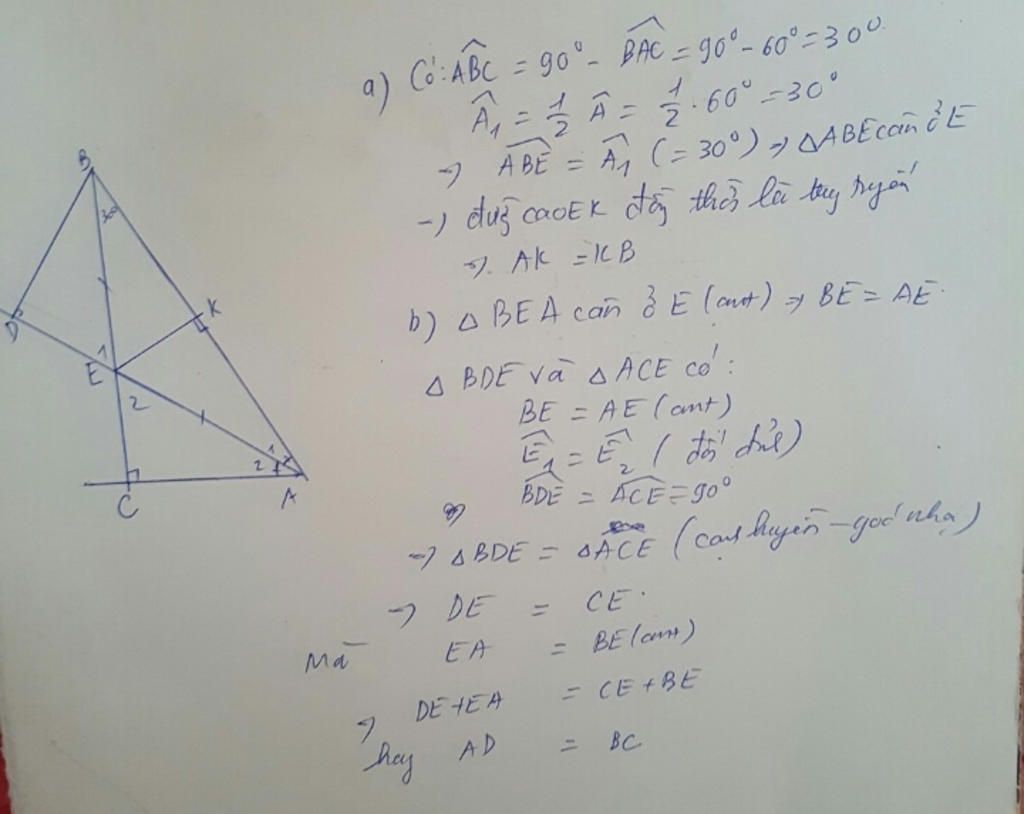 a) Có: ABC = 90° - BAC = 90° - 60° = 30°
A1 = 1/2 A = 1/2 . 60° = 30°
=> ABE = A1 (= 30°) => △ABE cân ở E
-> đường cao EK đồng thời là trung tuyến
=> AK = KB
b) △ BEA cân ở E (cmt) => BE = AE.
△ BDE và △ ACE có:
BE = AE (cmt)
E1 = E2 ( đối đỉnh)
BDE = ACE = 90°
-> △BDE = △ACE (cạnh huyền - góc nhọn)
-> DE = CE.
Mà EA = BE (cmt)
=> DE + EA = CE + BE
hay AD = BC
B
30°
K
D
1
E
2
1
2
C
A